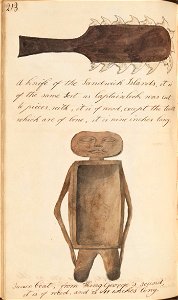 213
A Knife of the Sandwich Islands, it is
of the same sort as Captain Cook was cut
to pieces with, it is of wood, except the teeth
which are of bone, it is nine inches long.
Snow boat, from King George's sound,
it is of wood, and is six inches long.